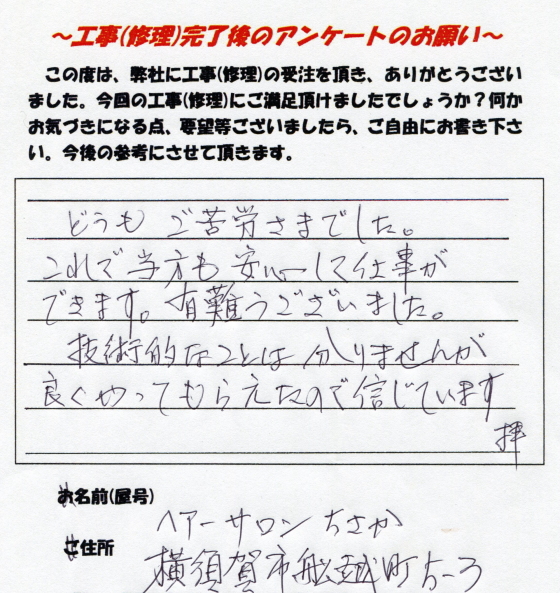 ～工事(修理)完了後のアンケートのお願い～
この度は、弊社に工事(修理)の受注を頂き、ありがとうござい
ました。今回の工事(修理)にご満足頂けましたでしょうか？何か
お気づきになる点、要望等ございましたら、ご自由にお書き下さ
い。今後の参考にさせて頂きます。
どうもご苦労さまでした。
これで当方も安心して仕事が
できます。有難うございました。
技術的なことは分りませんが
良くやってもらえたので信じています
拝
お名前(屋号)
ヘアーサロン ちさか
ご住所
横須賀市船越町5-3